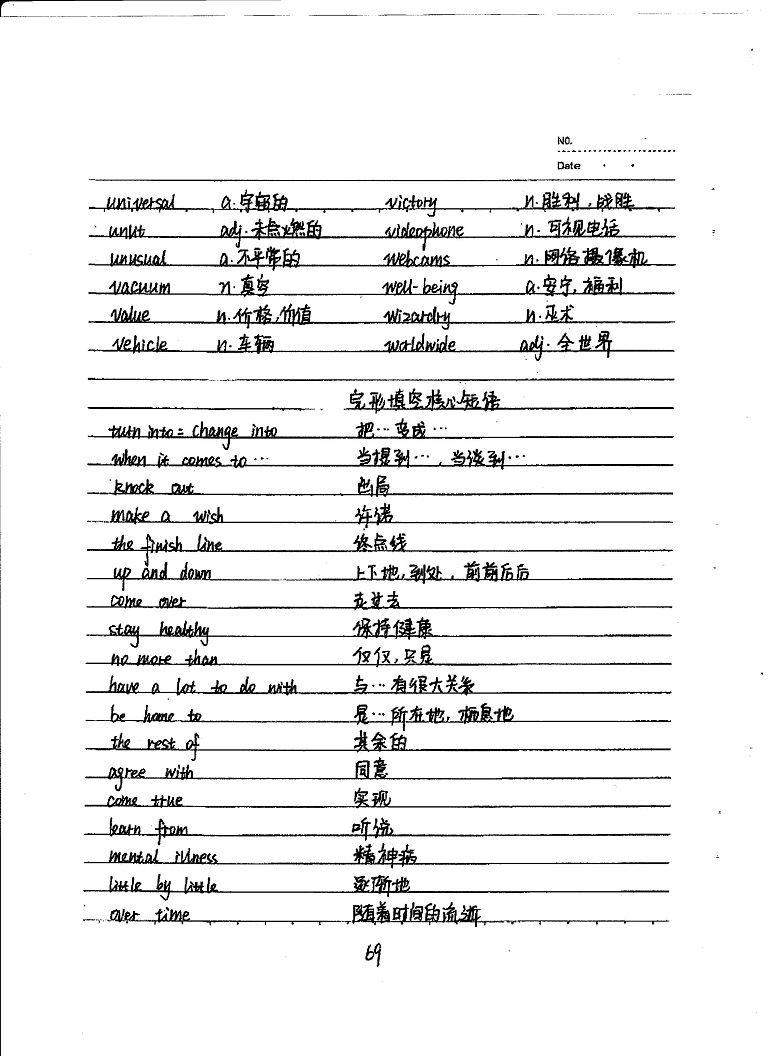 NO.
Date
universal a.宇宙的 victory n.胜利,战胜
unlit adj.未点燃的 videophone n.可视电话
unusual a.不平常的 webcams n.网络摄像机
vacuum n.真空 well-being a.安宁,福利
value n.价格,价值 wizardry n.巫术
vehicle n.车辆 worldwide adj.全世界
完形填空核心短语
turn into = change into 把…变成…
when it comes to… 当提到…,当谈到…
knock out 出局
make a wish 许诺
the finish line 终点线
up and down 上下地,到处,前前后后
come over 走过去
stay healthy 保持健康
no more than 仅仅,只是
have a lot to do with 与…有很大关系
be home to 是…所在地,栖息地
the rest of 其余的
agree with 同意
come true 实现
learn from 听说
mental illness 精神病
little by little 逐渐地
over time 随着时间的流逝
69